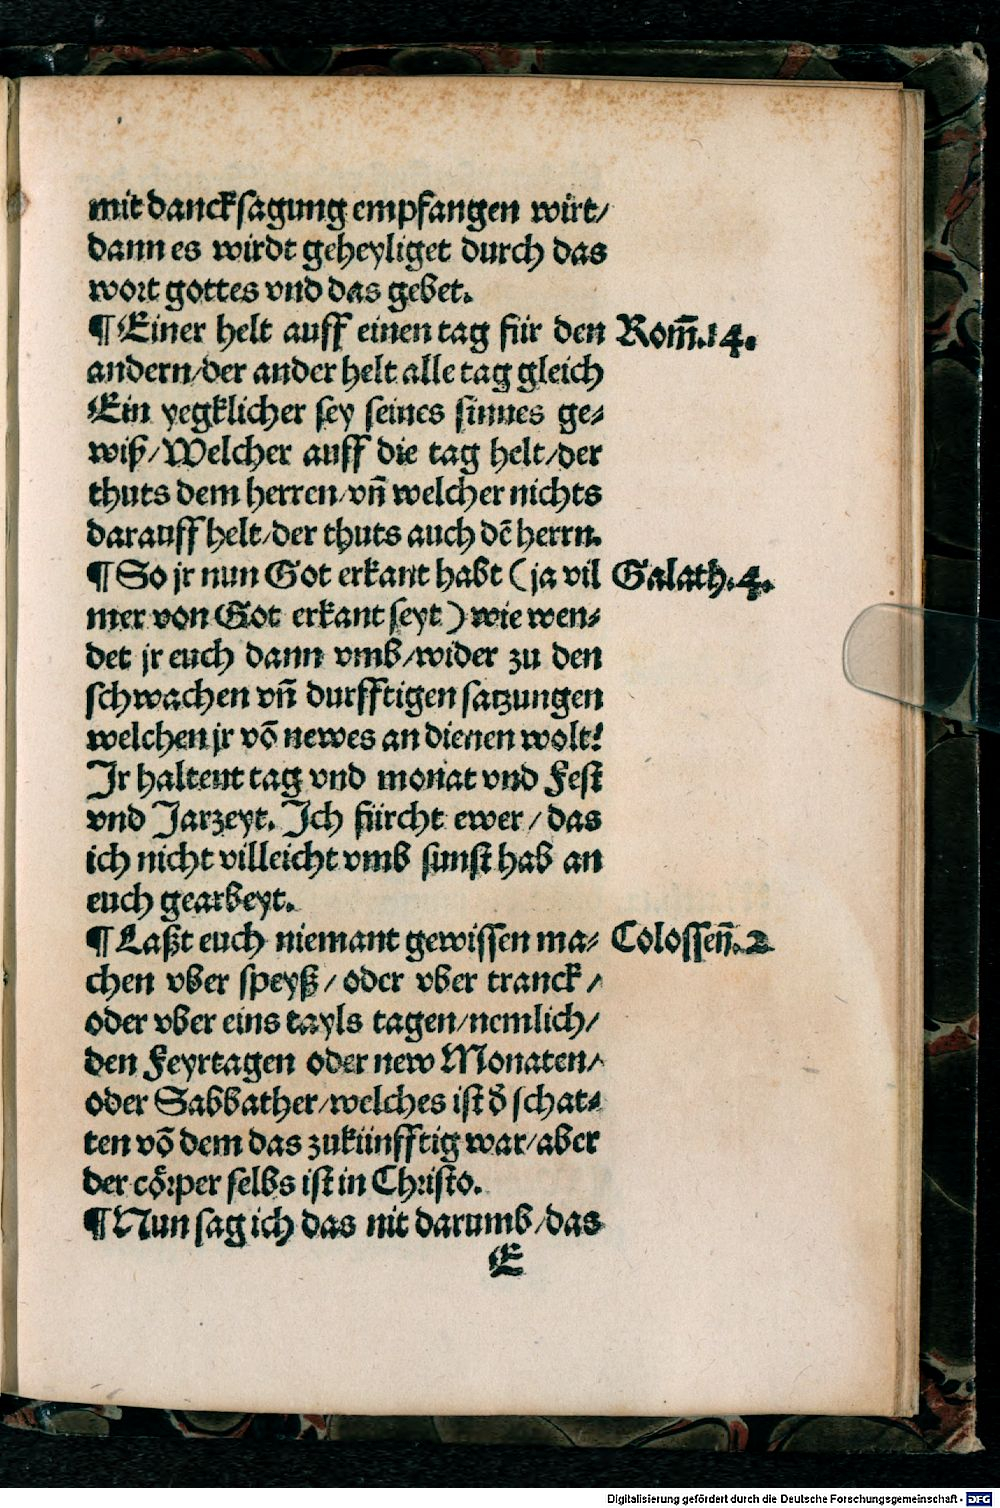 mit dancksagung empfangen wirt/
dann es wirdt geheyliget durch das
wort gottes vnd das gebet.
¶ Einer helt auff einen tag für den Rom̃.14.
andern/der ander helt alle tag gleich
Ein yegklicher sey seines sinnes ge⸗
wiß/Welcher auff die tag helt/der
thuts dem herren/vñ welcher nichts
darauff helt/der thuts auch dẽ herrn.
¶ So jr nun Got erkant habt (ja vil Galath.4.
mer von Got erkant seyt) wie wen⸗
det jr euch dann vmb/wider zu den
schwachen vñ durfftigen satzungen
welchen jr võ newes an dienen wolt?
Jr haltent tag vnd monat vnd Fest
vnd Jarzeyt. Ich fürcht ewer/das
ich nicht villeicht vmb sunst hab an
euch gearbeyt.
¶ Laßt euch niemant gewissen ma⸗ Colosseñ.2
chen vber speyß/oder vber tranck/
oder vber eins tayls tagen/nemlich/
den Feyrtagen oder new Monaten/
oder Sabbather/welches ist d̃ schat⸗
ten võ dem das zukünfftig war/aber
der cörper selbs ist in Christo.
¶ Nun sag ich das nit darumb/das
E
Digitalisierung gefördert durch die Deutsche Forschungsgemeinschaft - DFG